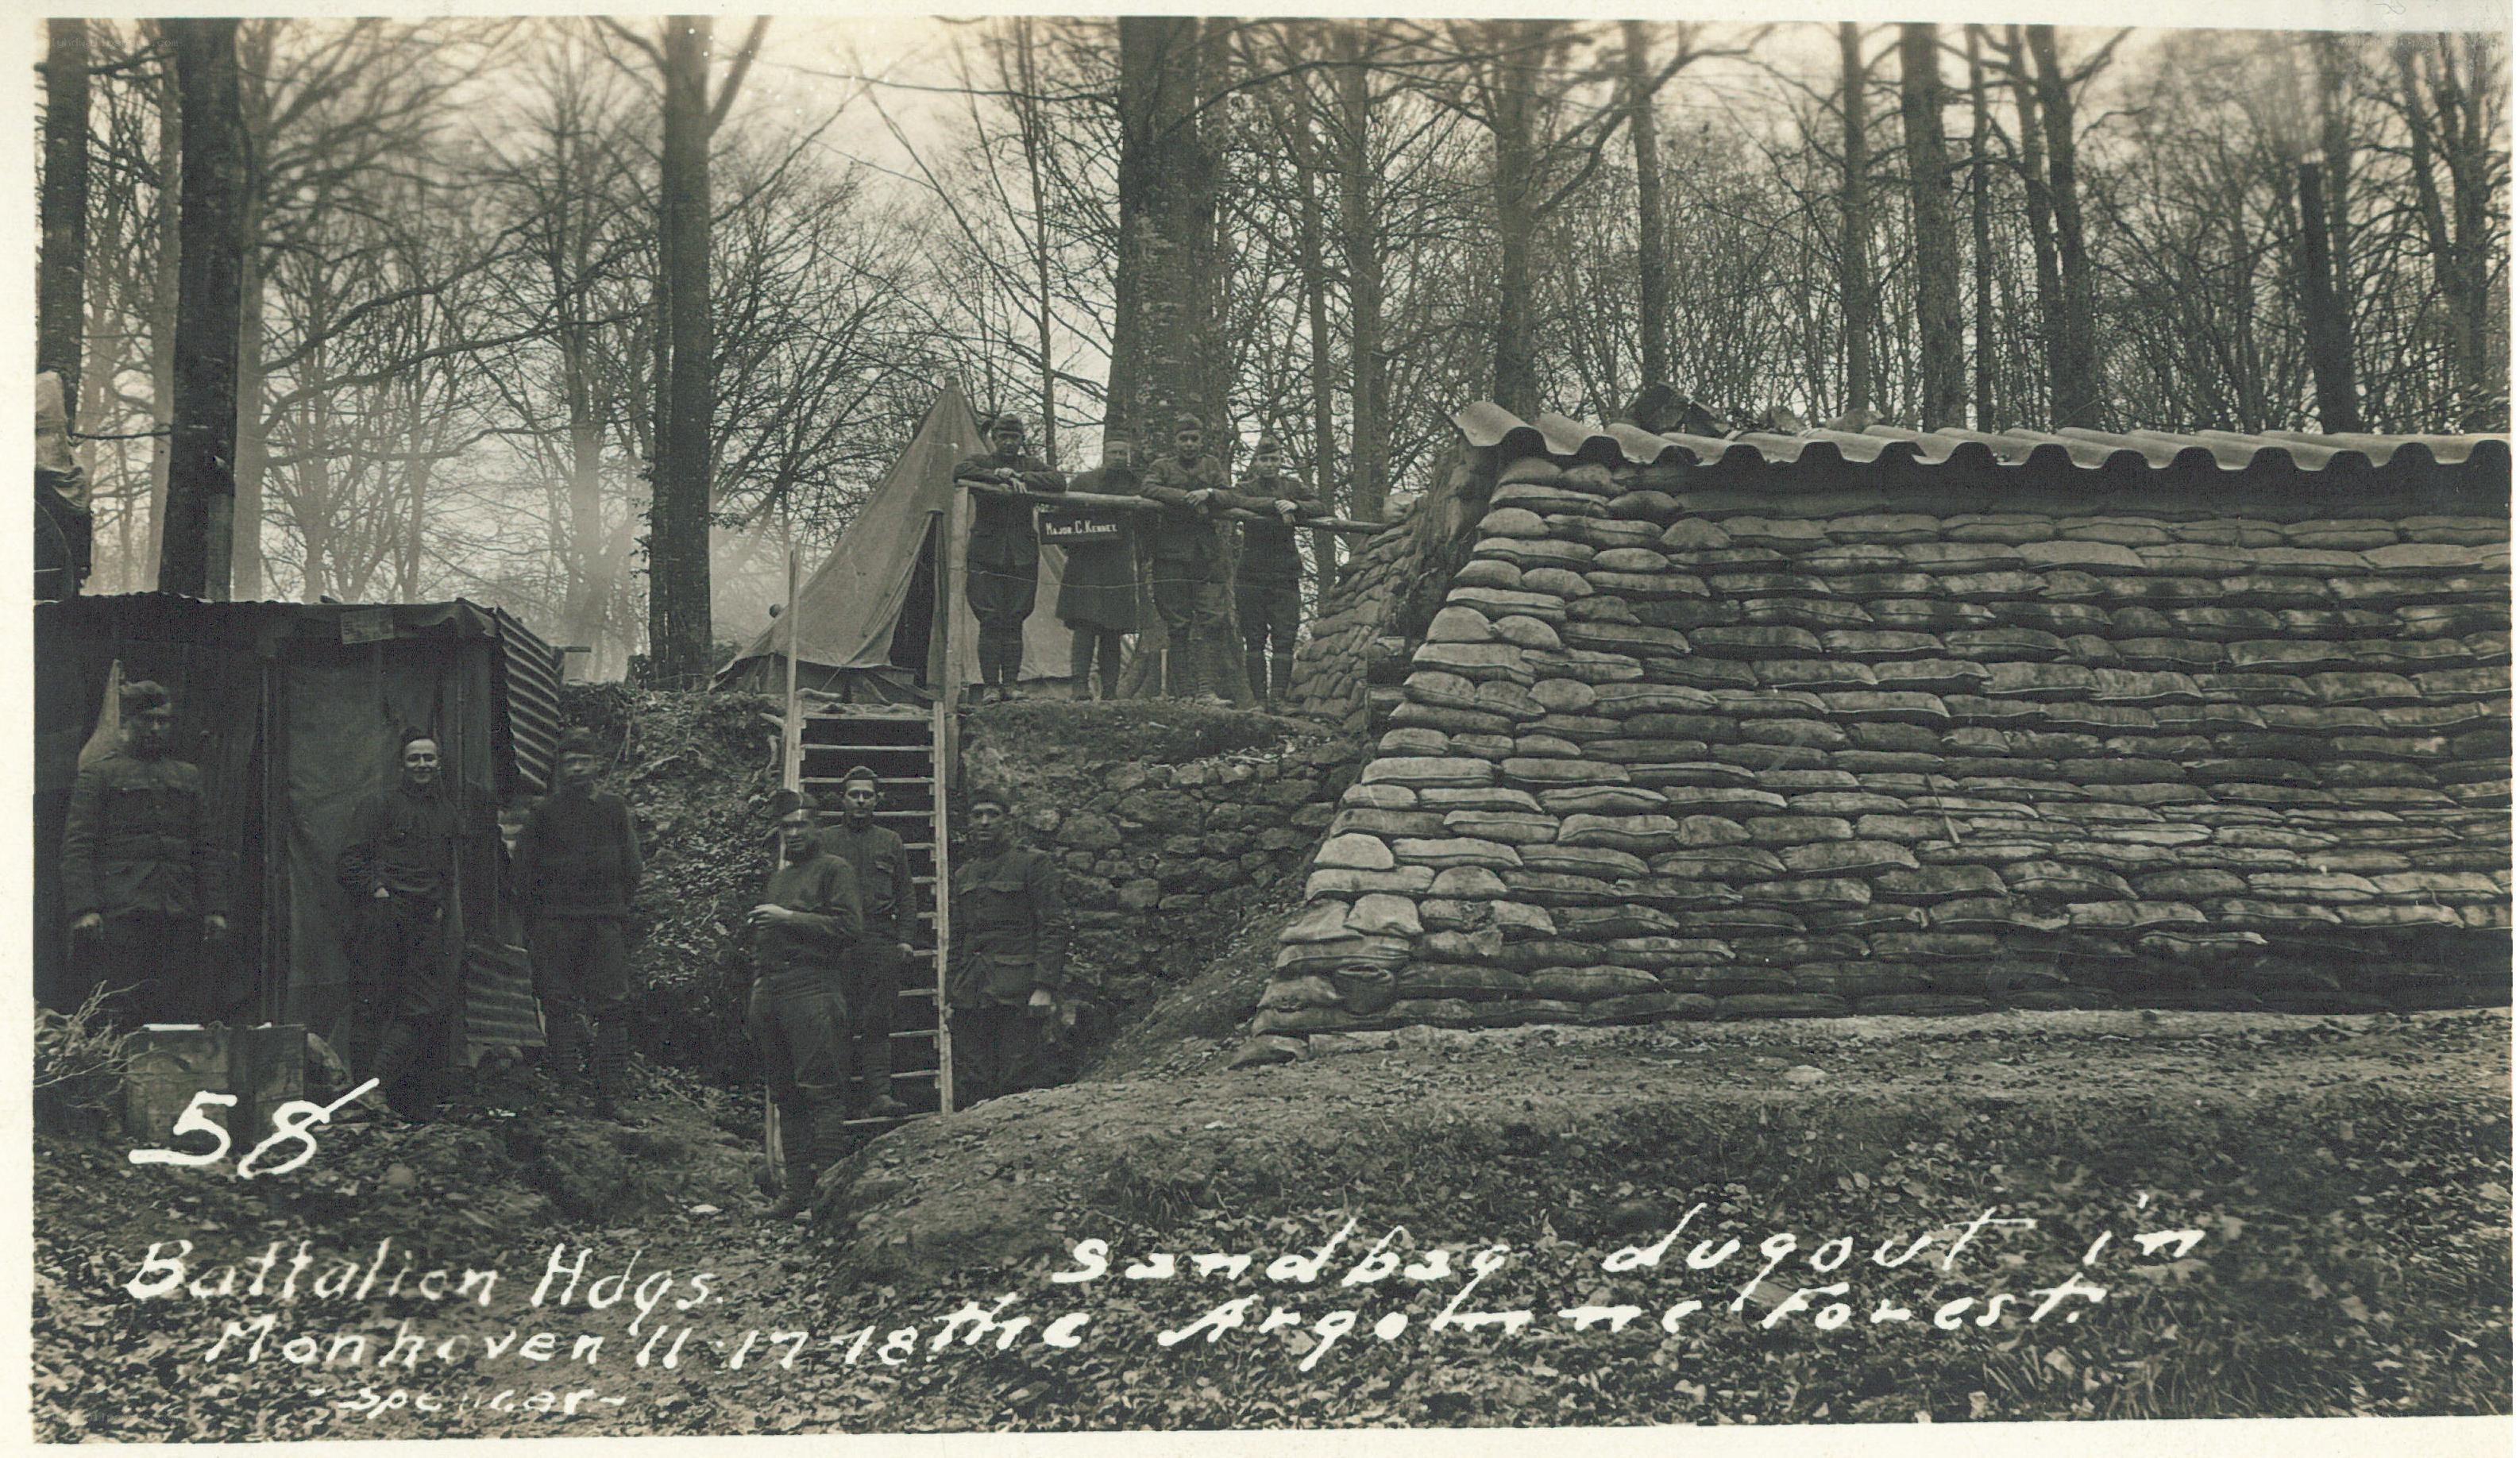 MAJOR. C. KENNEY.
58
Battalion Hdqs.
Monhoven 11-17-18
-Spencer-
Sandbag dugout in
the Argonne Forest.